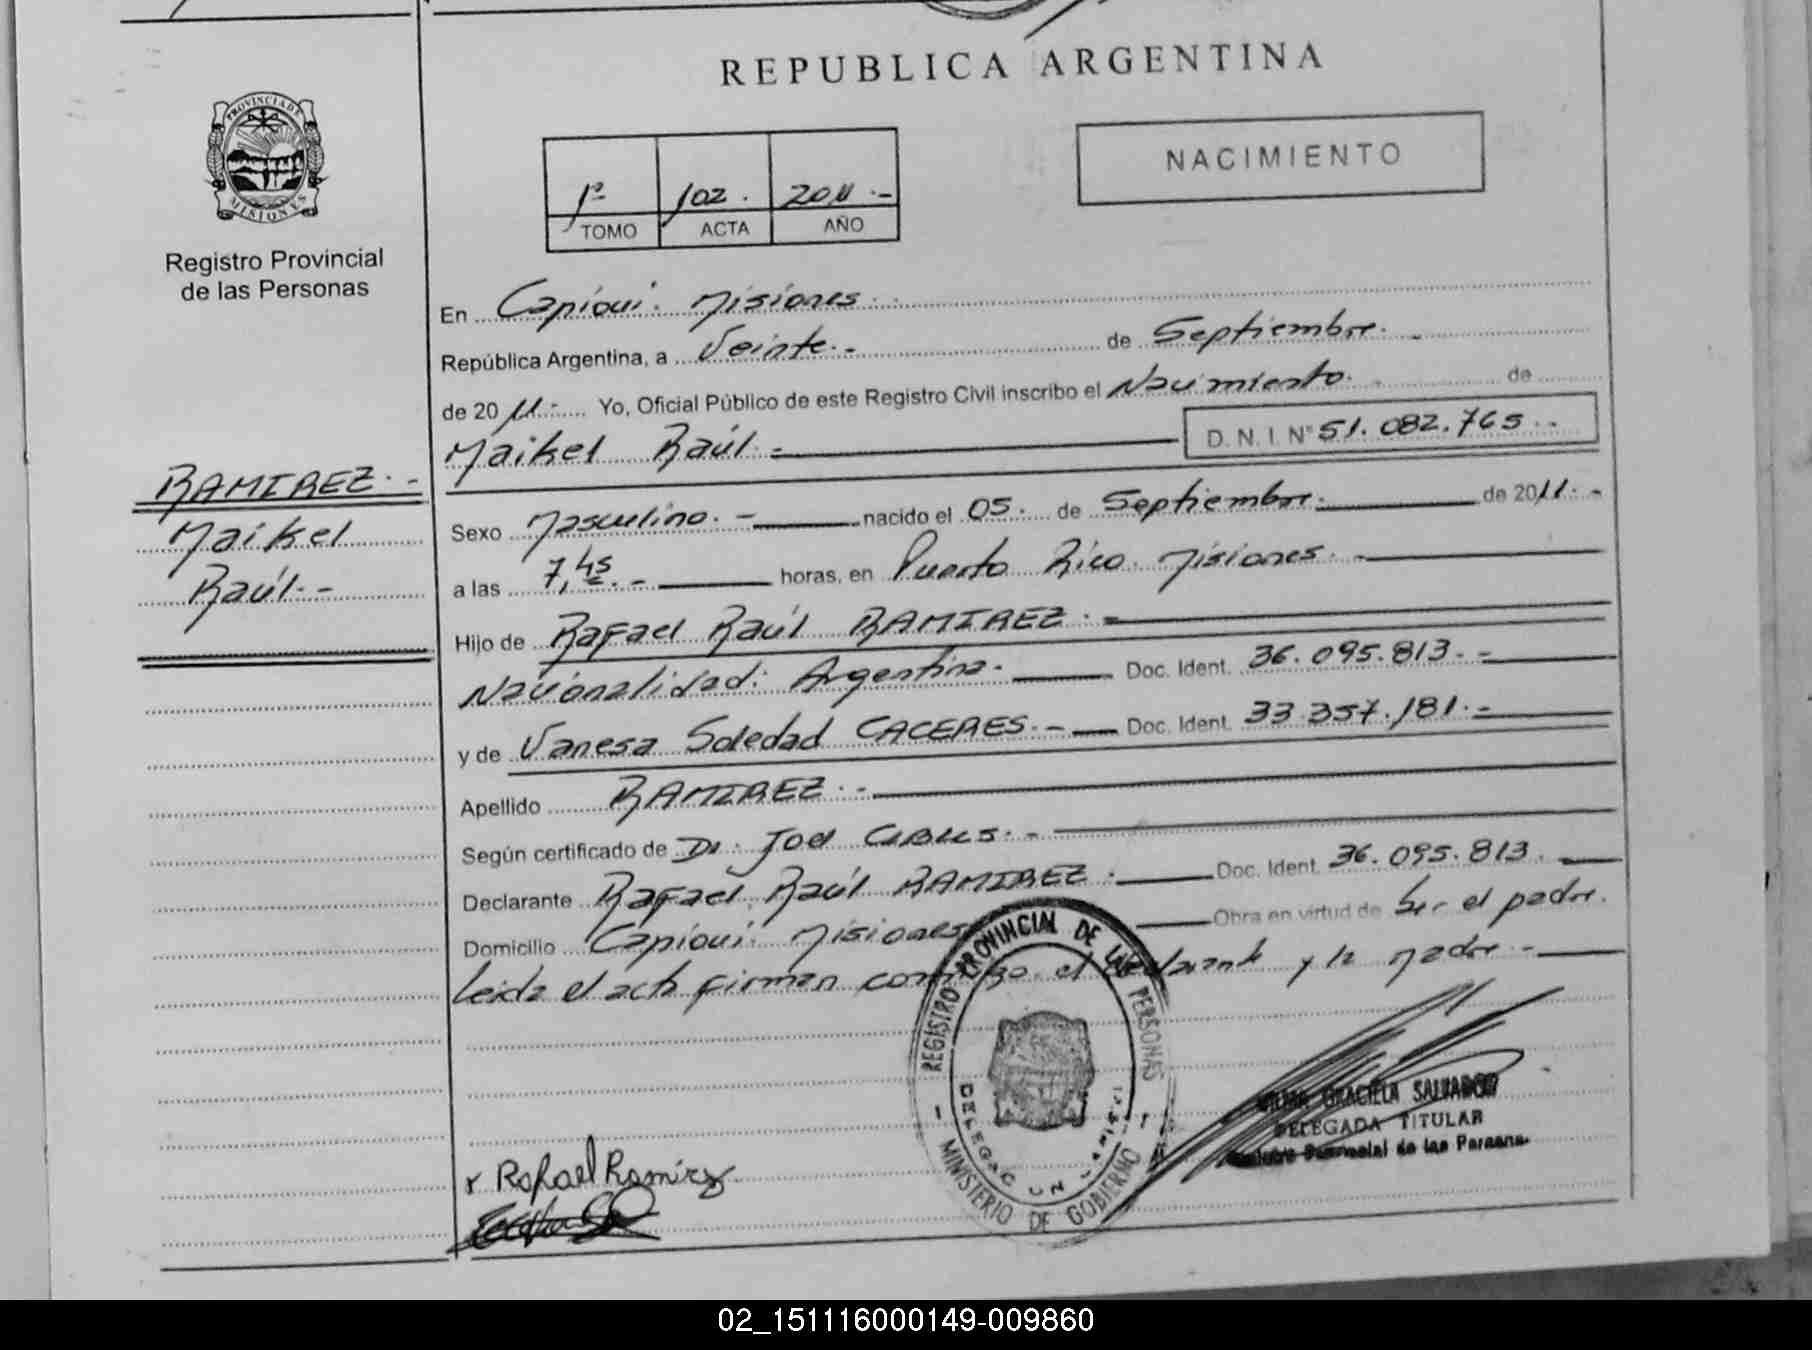 REPUBLICA ARGENTINA
NACIMIENTO
1º 102. 2011.-
TOMO ACTA AÑO
PROVINCIA DE
MISIONES
Registro Provincial
de las Personas
RAMIREZ.-
Maikel
Raúl.-
En Capioui. Misiones.
República Argentina, a Veinte.- de Septiembre.-
de 2011.- Yo, Oficial Público de este Registro Civil inscribo el Nacimiento. de
Maikel Raúl.- D. N. I. Nº 51.082.765.-
Sexo Masculino.- nacido el 05. de Septiembre. de 2011.-
a las 7,45.- horas, en Puerto Rico. Misiones.-
Hijo de Rafael Raúl RAMIREZ.-
Nacionalidad: Argentina. Doc. Ident. 36.095.813.-
y de Vanesa Soledad CACERES.- Doc. Ident. 33.357.181.-
Apellido RAMIREZ.-
Según certificado de Dr. Joel
Declarante Rafael Raúl RAMIREZ. Doc. Ident. 36.095.813.
Domicilio Capioui. Misiones Obra en virtud de Ser el padre.
Leida el acta firman conmigo el declarante y la madre.-
REGISTRO PROVINCIAL DE LAS PERSONAS
- MINISTERIO DE GOBIERNO -
GRACIELA SALVADOR
DELEGADA TITULAR
Provincial de las Personas
Rafael Ramirez
02_151116000149-009860